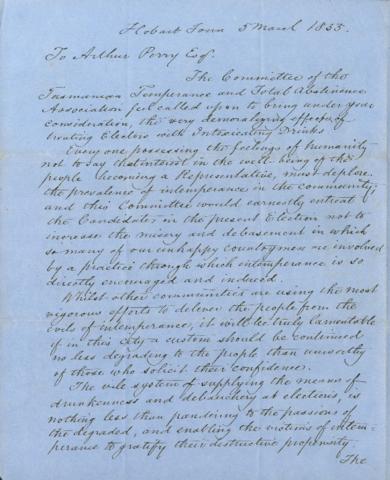 Hobart Town 5 March 1855.
To Arthur Perry Esq.
The Committee of the
Tasmanian Temperance and Total Abstinence
Association feel called upon to bring under your
consideration, the very demoralizing effects of
treating Electors with Intoxicating Drinks
Every one possessing the feelings of humanity
not to say that interest in the well-being of the
people becoming a Representative, must deplore
the prevalence of intemperance in the community,
and this Committee would earnestly entreat
the Candidates in the present Election not to
increase the misery and debasement in which
so many of our unhappy countrymen are involved
by a practice through which intemperance is so
directly encouraged and induced.
Whilst other communities are using the most
vigorous efforts to deliver the people from the
evils of intemperance, it will be truly lamentable
if in this city a custom should be continued
no less degrading to the people than unworthy
of those who solicit their confidence.
The vile system of supplying the means of
drunkenness and debauchery at elections, is
nothing less than pandering to the passions of
the degraded, and enabling the victims of intem-
perance to gratify their destructive propensity.
The